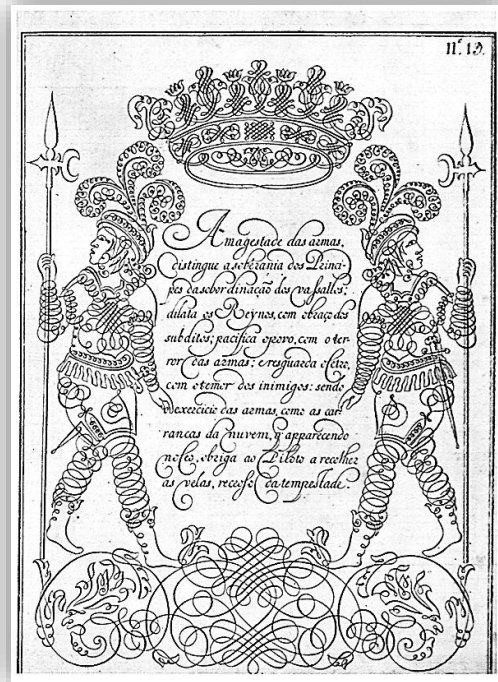 Nº. 19.
A magestade das armas,
distingue a soberania dos Princi-
pes da sobordinação dos vassallos;
dilata os Reynos, com obraço dos
subditos; pacifica opovo, com o ter-
ror das armas; e resguarda osetro,
com otemor dos inimigos: sendo
o exercicio das armas, como as car-
rancas da nuvem, q̃ apparecendo
no Ceo, obriga ao Piloto a recolher
as velas, receoso da tempestade.